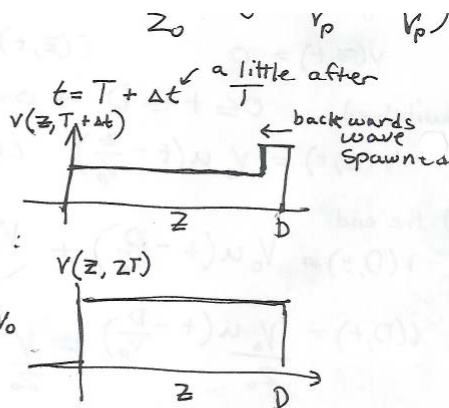 Z₀ V_p V_p)
a little after
T
t = T + Δt
V(z, T+Δt)
← backwards
wave
spawned
z D
:
V(z, 2T)
V₀
z D